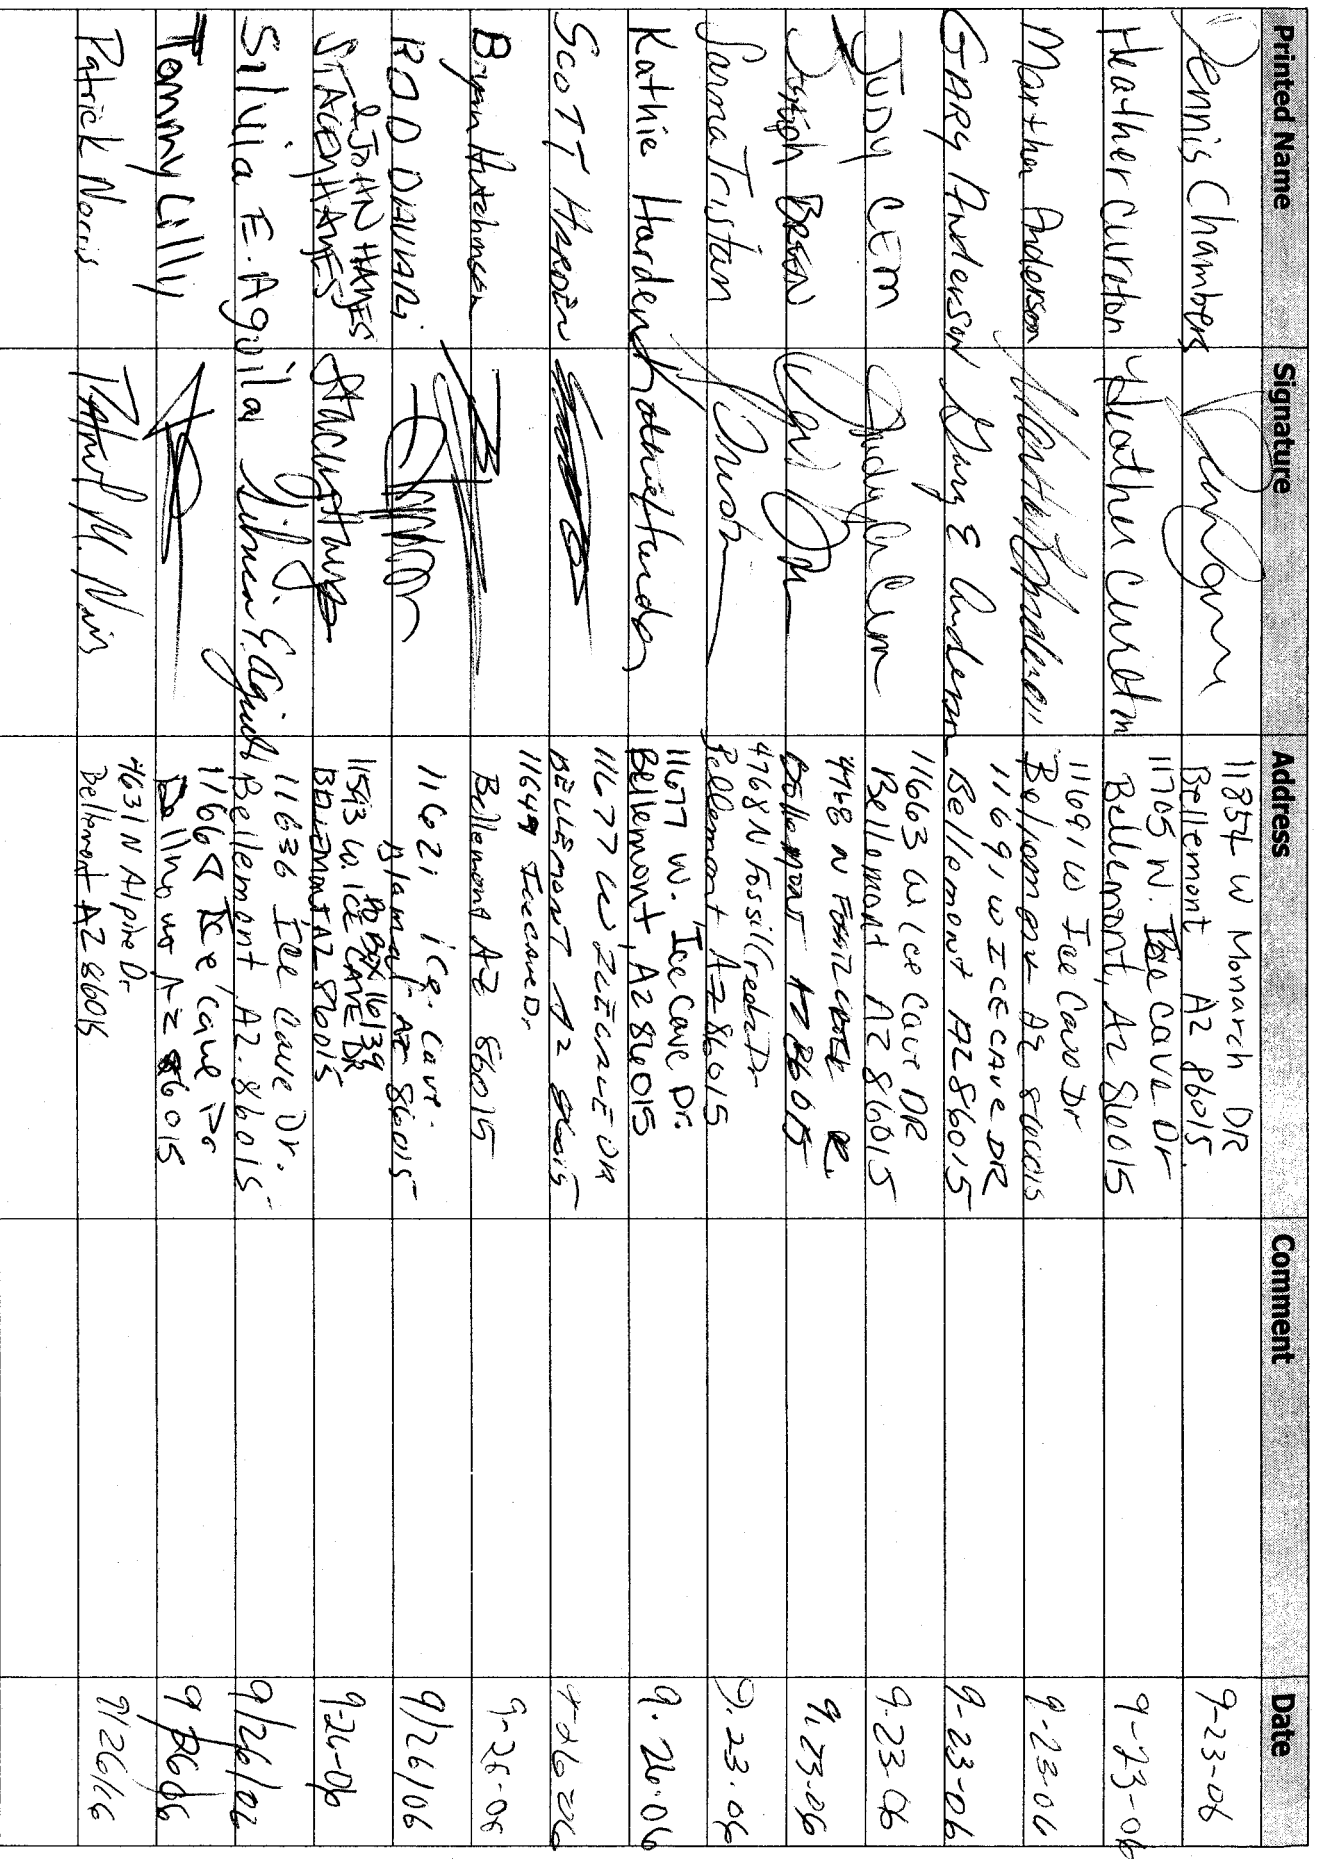 Printed Name Signature Address Comment Date
Dennis Chambers
11857 W Monarch DR
Bellemont Az 86015.
9-23-06
Heather Cureton Heather Cureton
11705 W. Ice Cave Dr
Bellemont, Az 86015
9-23-06
Martha Anderson Martha Anderson
11691 W Ice Cave Dr
9-23-06
GARY Anderson Gary E Anderson
11691 W ICE CAVE DR
Bellemont AZ 86015
9-23-06
JUDY CEM Judy Cem
11663 W Ice Cave DR
Bellemont AZ 86015
9-23-06
Joseph
4768 N Fossil Creek
Bellemont AZ 86015
9.23.06
Sarma Tristan
4768 N Fossil Creek Dr
Bellemont AZ 86015
9.23.06
Kathie Harden Kathie Harden
11677 W. Ice Cave Dr.
Bellemont, AZ 86015
9.26.06
SCOTT HARDEN
11677 W ICE CAVE DR
BELLEMONT AZ 86015
9-26-06
Bryan Hutchinson
11649 Icecave Dr.
Bellemont AZ 86015
9-26-06
ROD DAVARi
11621 ice. cave.
AZ 86015
9/26/06
& JOHN HAYES
STACEY HAYES
PO BOX 16139
11593 W. ICE CAVE DR
BELLEMONT AZ 86015
9-26-06
Silvia E. Aguila Silvia E. Aguila
11636 Ice Cave Dr.
Bellemont AZ. 86015
9/26/06
Tommy Lilly
Ice cave Dr
AZ 86015
9/26/06
Patrick Norris Patrick M. Norris
4631 N Alpine Dr
Bellemont AZ 86015
9/26/06